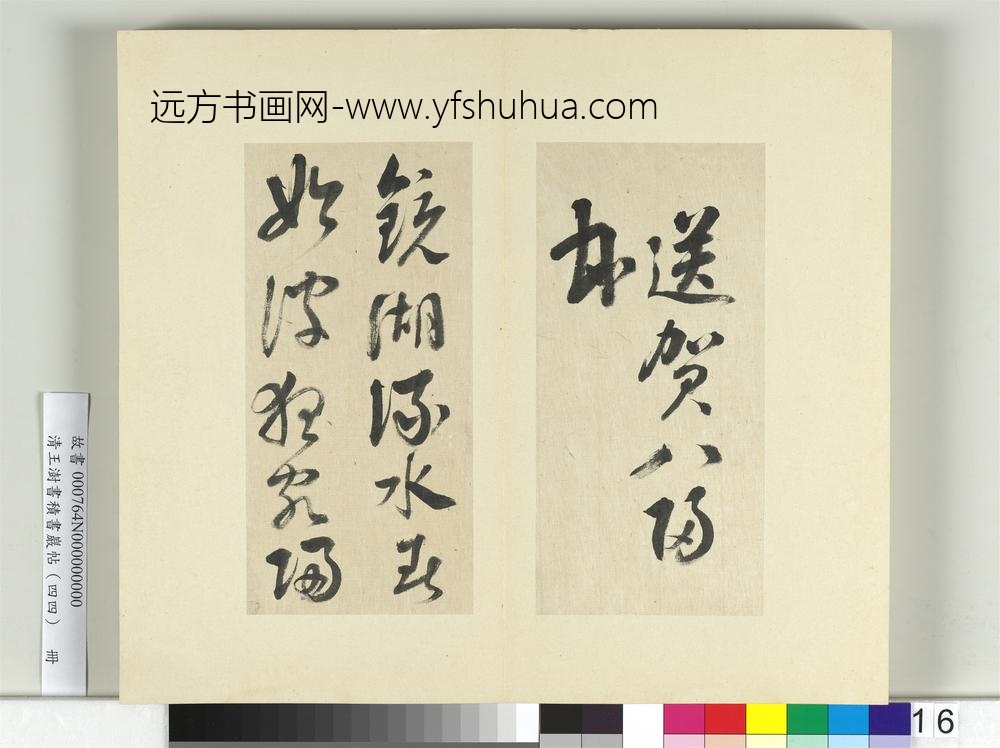 远方书画网-www.yfshuhua.com
送賀八歸
鏡湖流水春
始波狂客歸
故書 000764N000000000
清王澍書積書巖帖（四四） 冊
16